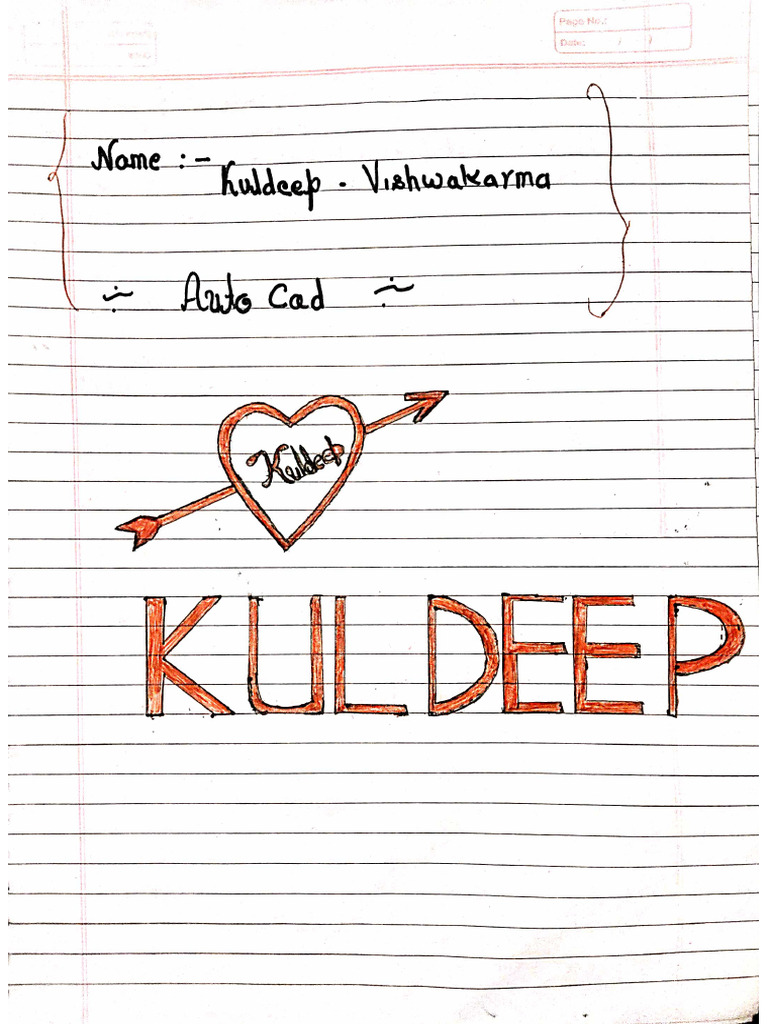 Page No.:
Date: / /
Name :-
Kuldeep . Vishwakarma
÷ Auto Cad ÷
Kuldeep
KULDEEP